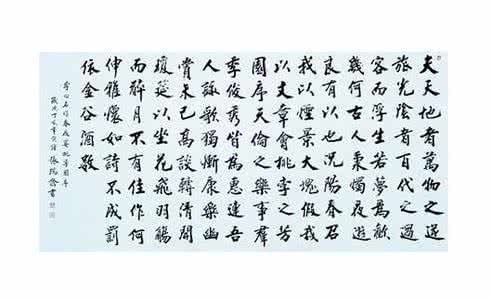 夫天地者萬物之逆
旅光陰者百代之過
客而浮生若夢為歡
幾何古人秉燭夜遊
良有以也況陽春召
我以煙景大塊假我
以文章會桃李之芳
園序天倫之樂事群
季俊秀皆為惠連吾
人詠歌獨慚康樂幽
賞未已高談轉清開
瓊筵以坐花飛羽觴
而醉月不有佳作何
伸雅懷如詩不成罰
依金谷酒數
春夜宴桃李園序
歲次丁亥 書